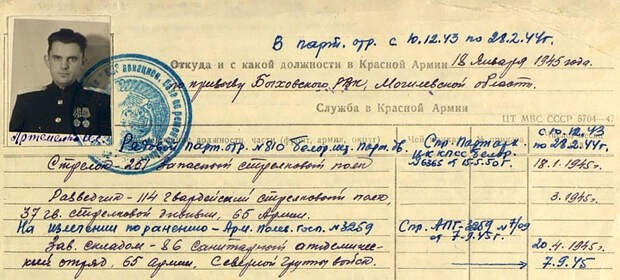 В парт. отр. с 10.12.43 по 28.2.44г.
Откуда и с какой должности в Красной Армии 18 Января 1945 года.
по призыву Быховского РВК, Могилевской области.
Служба в Красной Армии
ЦТ МВС СССР 5704—47
с 10.12.43
по 28.2.44г.
должность части (фронт, армия, округ)
Рядовой парт. отр. №810 Белор. шт. Парт. дв.
Спр. Партарх.
ЦК КПСС Белор.
№6365 от 15.5.50г.
Стрелок - 261 запасной стрелковый полк
18.1.1945г.
Разведчик - 114 гвардейский стрелковый полк,
3.1945г.
37 гв. стрелковой дивизии, 65 Армии.
На излечении по ранению - Арм. Полев. Госп. №3259
Спр. АПГ-3259 №7/09
от 7.9.45г.
Зав. складом - 86 санитарный
20.4.1945г.
отряд, 65 армии, Северной группы войск.
7.9.45